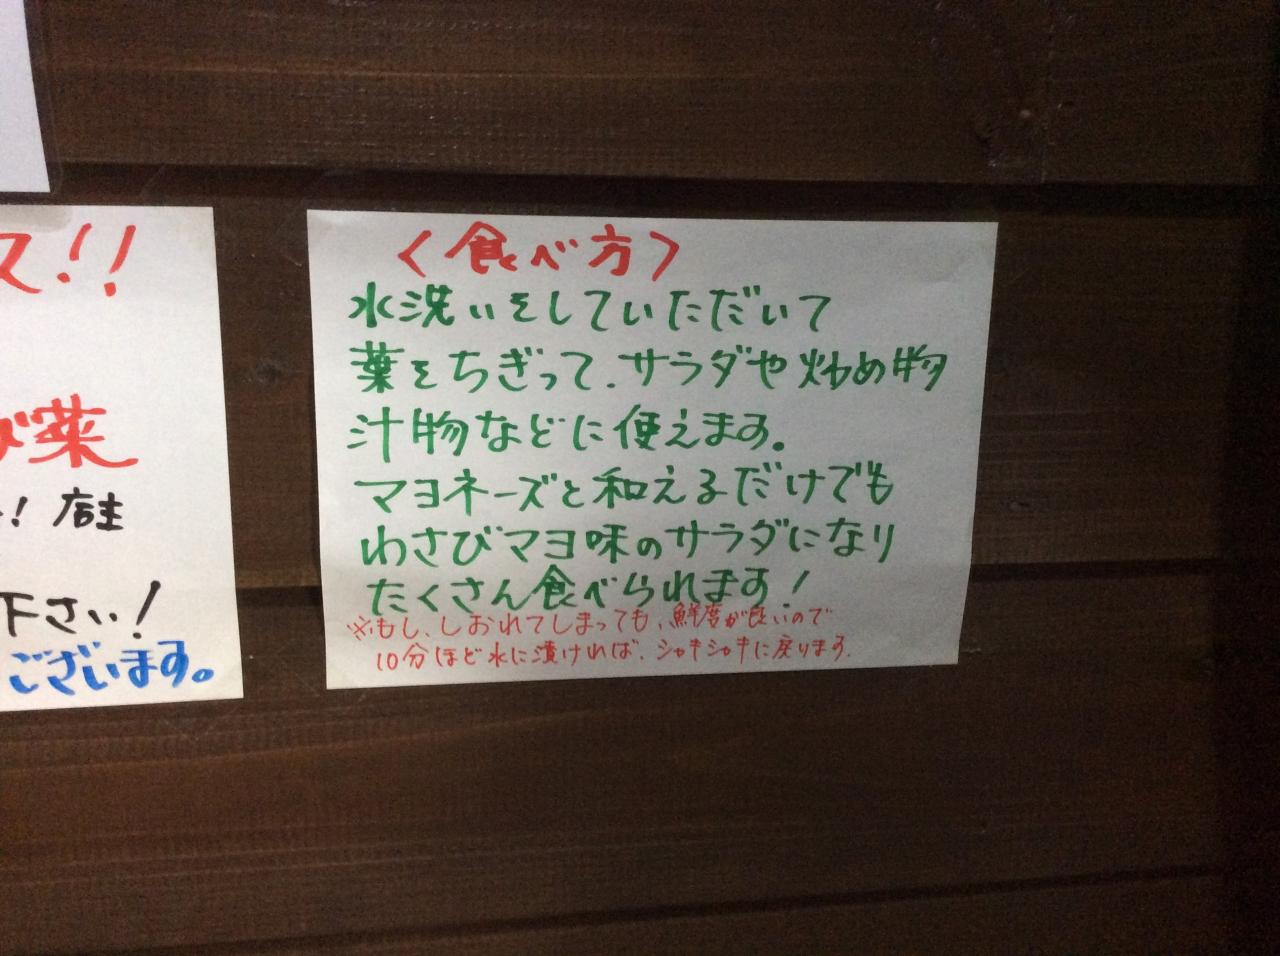 ス!!
び菜
! 店主
下さい!
ございます。
〈食べ方〉
水洗いをしていただいて
葉をちぎって、サラダや炒め物
汁物などに使えます。
マヨネーズと和えるだけでも
わさびマヨ味のサラダになり
たくさん食べられます!
※もし、しおれてしまっても、鮮度が良いので
10分ほど水に漬ければ、シャキシャキに戻ります。